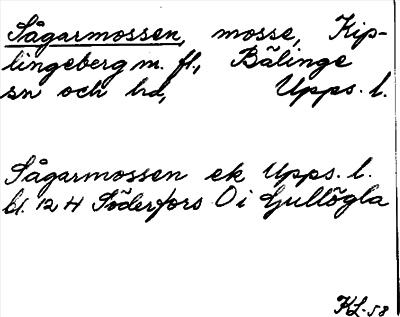 Sågarmossen, mosse, Kip-
lingeberg m. fl., Bälinge
sn och hd, Upps. l.
Sågarmossen ek Upps. l.
bl. 12 H Söderfors O i Gullögla
KL-58